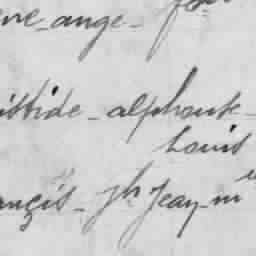 ve-ange-
istide-alphonse-
Louis
ançis-jh Jean-m